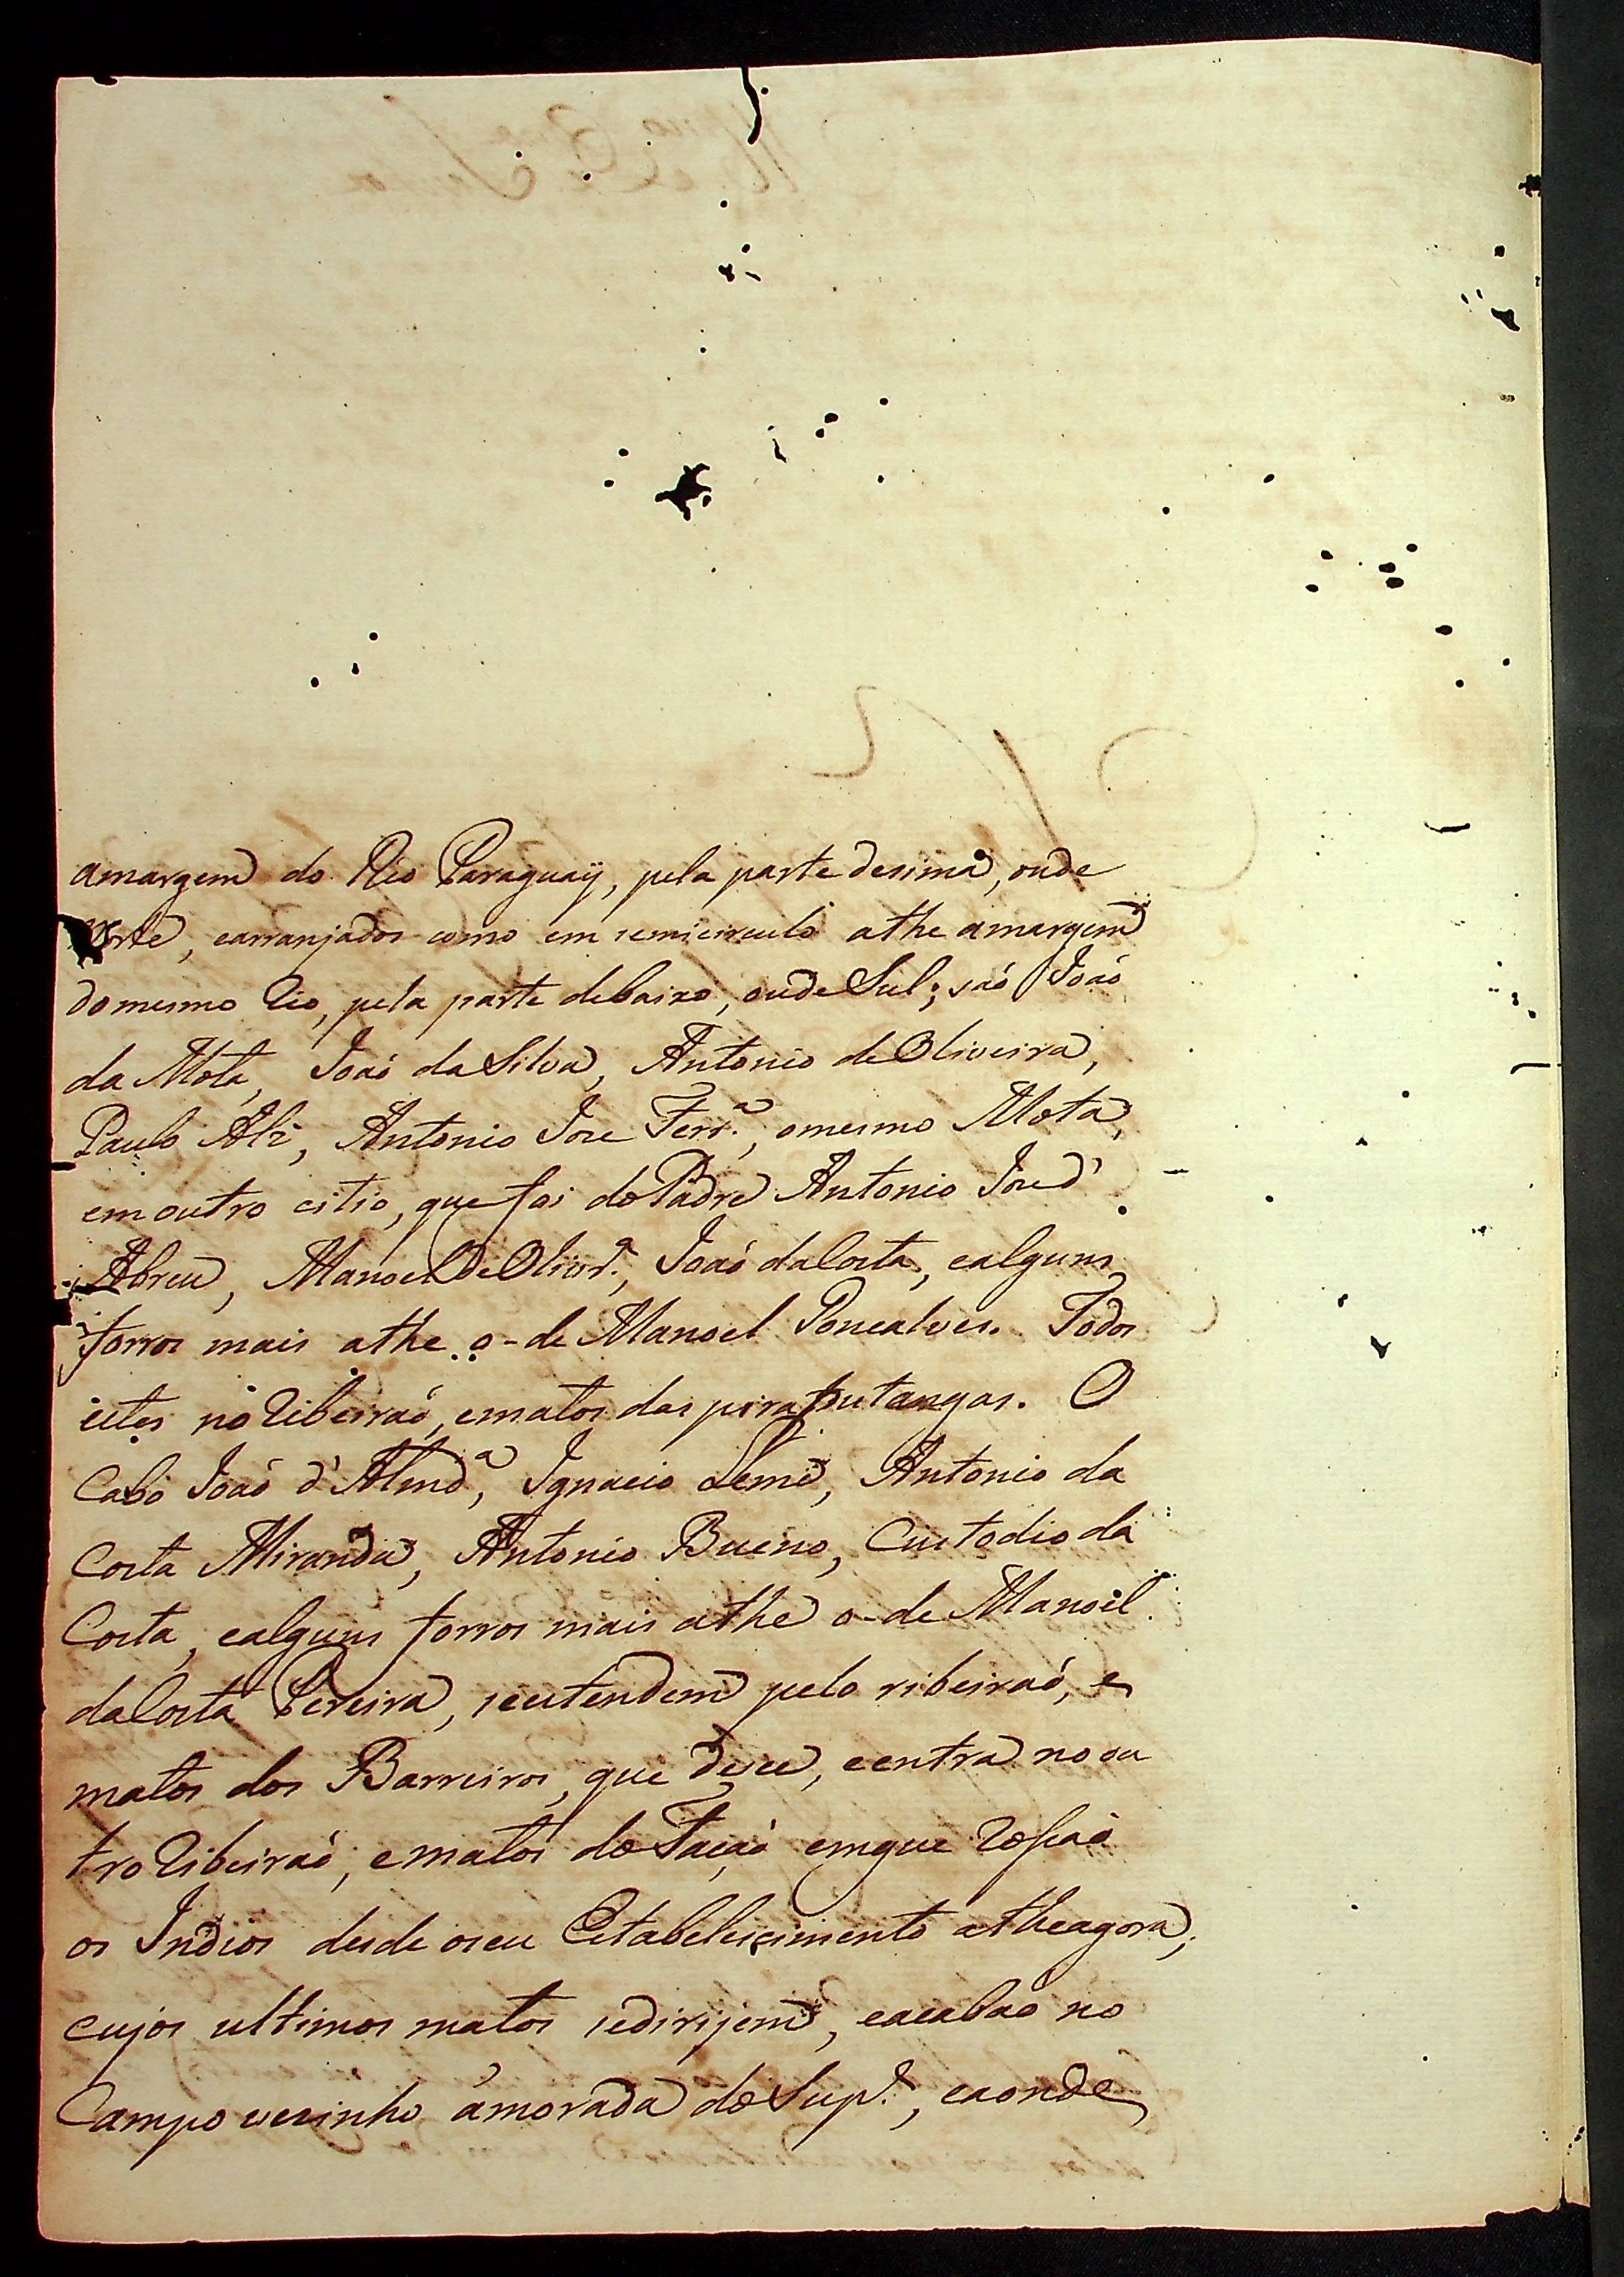 amargem do Rio Paraguaÿ, pela parte desima, ou de
Norte, earranjados como em semicirculo athe amargem
domesmo Rio, pela parte debaixo, oudeSul; saó Joaó
da Mota, Joaó daSilva, Antonio deOliveira,
Paulo Alz, Antonio Joze Ferr.ª, omesmo Mota,
em outro citio, quefoi doPadre Antonio Joze d'
Abreu, Manoel DeOlivr.ª, Joaó daCosta, ealguns
forros mais athe o-de Manoel Goncalves. Todos
estes no Ribeiraó, ematos das piraputangas. O
Cabo Joaó d'Almdª, Ignacio Leme, Antonio da
Costa Miranda, Antonio Bueno, Custodio da
Costa, ealguns forros mais athe o-de Manoel
daCosta Pereira, seestendem pelo ribeiraó, e
matos dos Barreiros, que desce, eentra no ou
tro Ribeiraó, ematos do Facaó emque Rosſaó
os Indios desde oseu Estabelescimento atheagora;
cujos ultimos matos sedirijem, eacabaó no
Campo vesinho ámorada doSup.e, eaonde